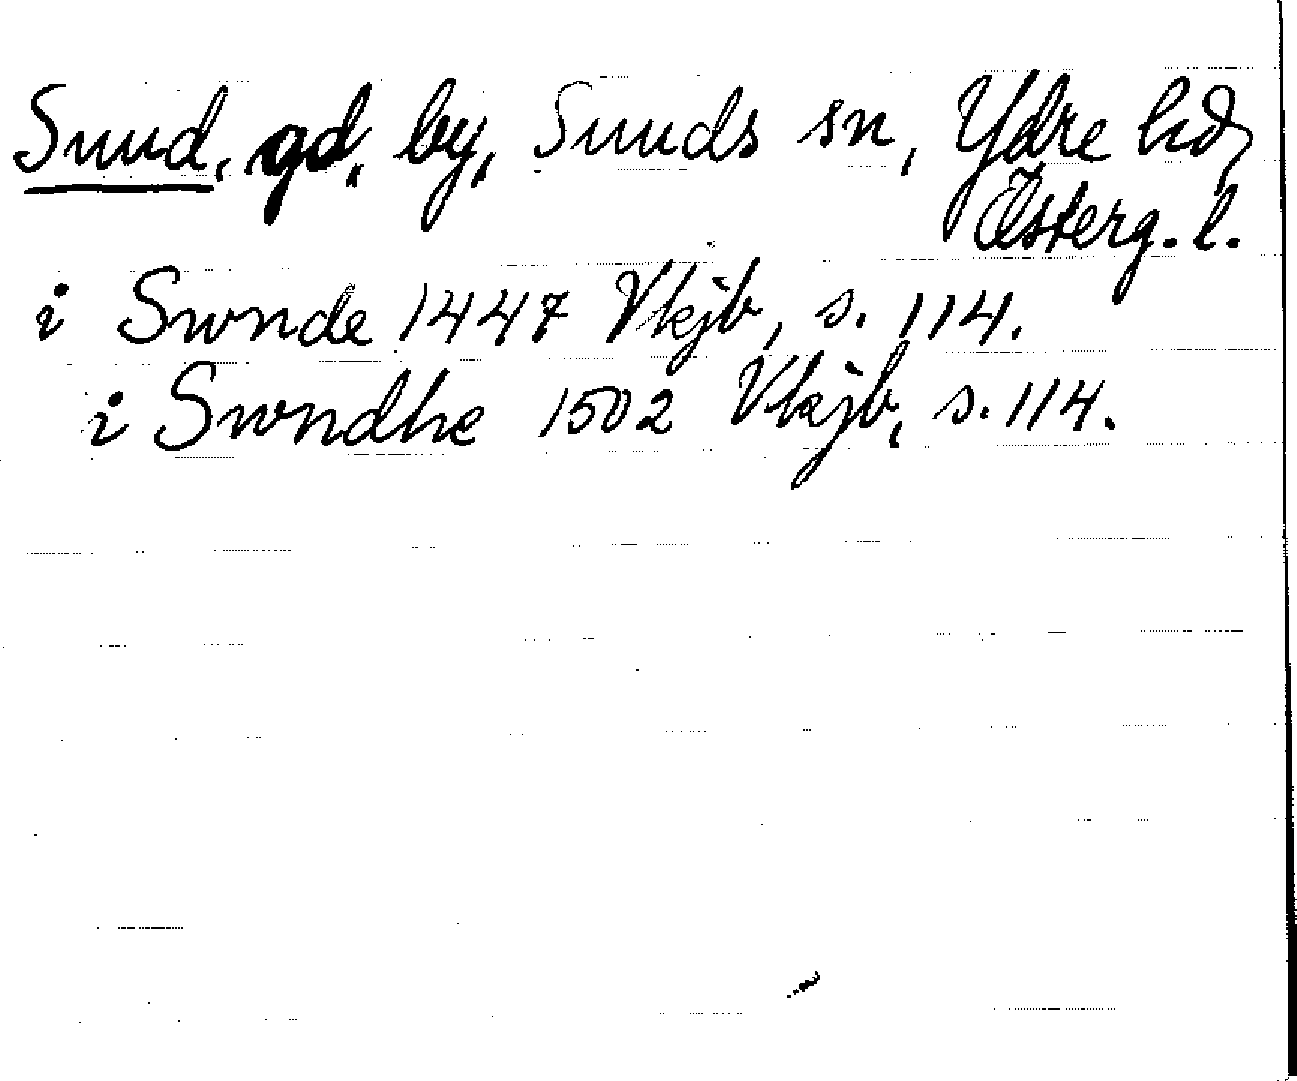 Sund, gd, by, Sunds sn, Ydre hd,
Österg. l.
i Swnde 1447 Vkjb, s. 114.
i Swndhe 1502 Vkjb, s. 114.